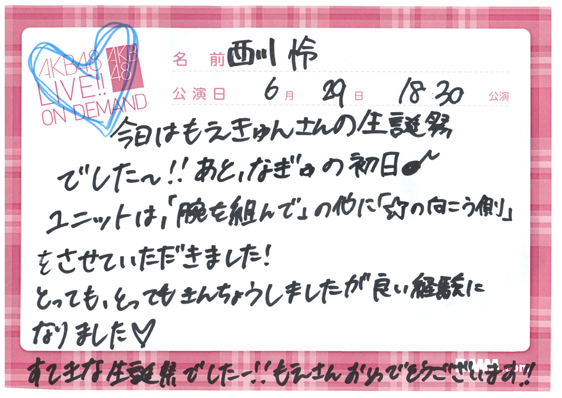 AKB48
LIVE!!
ON DEMAND
AKB
48
名前 西川怜
公演日 6月 29日 18:30 公演
今日はもえきゅんさんの生誕祭
でした〜!! あと、なぎゅの初日♪
ユニットは、「腕を組んで」の他に「☆の向こう側」
をさせていただきました!
とっても、とってもきんちょうしましたが良い経験に
なりました♡
すてきな生誕祭でしたー!! もえさんおめでとうございます!!